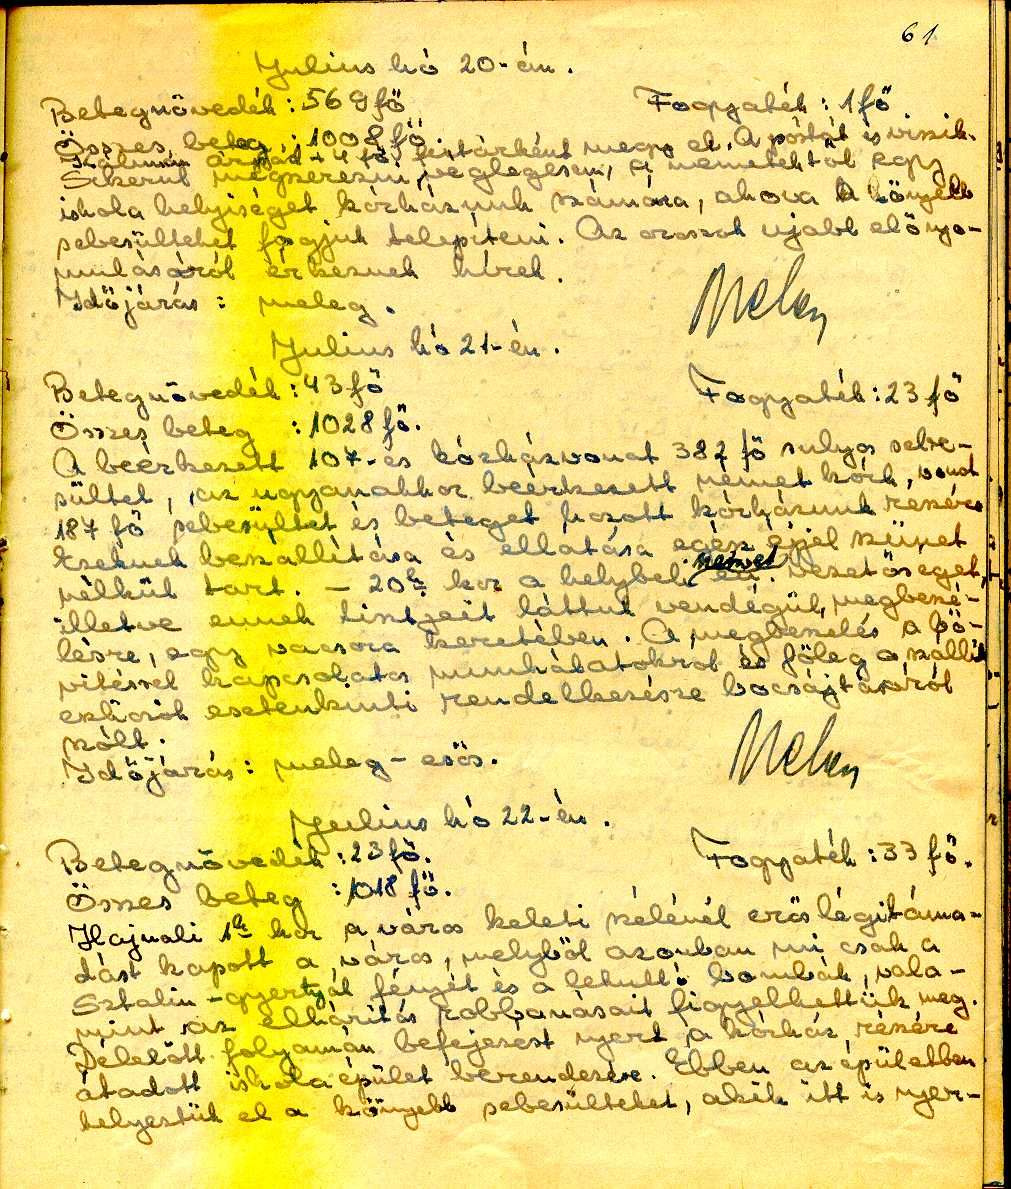 61
Julius hó 20-án.
Betegnövedék : 569 fő Fogyaték : 1 fő
Összes beteg : 1008 fő.
Kálmán árpád + 4 fő futárként megy el. A postát is viszik.
Sikerül megszerezni, véglegesen, a németektől egy
iskola helyiséget kórházunk számára, ahova a könyebb
sebesülteket fogjuk telepíteni. Az oroszok ujabb előnyo-
mulásáról érkeznek hírek.
Időjárás : meleg.
Julius hó 21-én.
Betegnövedék : 43 fő Fogyaték : 23 fő
Összes beteg : 1028 fő.
A beérkezett 107-es kórházvonat 382 fő sulyos sebe-
sültet, az ugyanakkor beérkezett német kórh. vonat
187 fő sebesültet és beteget hozott kórházunk részére
Ezeknek beszállítása és ellátása egész éjjel szünet
nélkül tart. - 20 h kor a helybeli német eü. vezetőséget,
illetve ennek tisztjeit láttuk vendégül, megbeszé-
lésre, egy vacsora keretében. A megbeszélés a bő-
vitéssel kapcsolatos munkálatokról és főleg a szállitó
eszközök esetenkinti rendelkezésre bocsájtásáról
szólt.
Időjárás : meleg - esős.
Julius hó 22-én.
Betegnövedék : 23 fő. Fogyaték : 33 fő.
Összes beteg : 1018 fő.
Hajnali 1 h kor a város keleti szélénél erős légitáma-
dást kapott a város, melyből azonban mi csak a
Sztalin-gyertyák fényét és a lehulló bombák, vala-
mint az elháritás robbanásait figyelhettük meg.
Délelőtt folyamán befejezést nyert a kórház részére
átadott iskola épület berendezése. Ebben az épületben
helyeztük el a könyebb sebesülteket, akik itt is nyer-